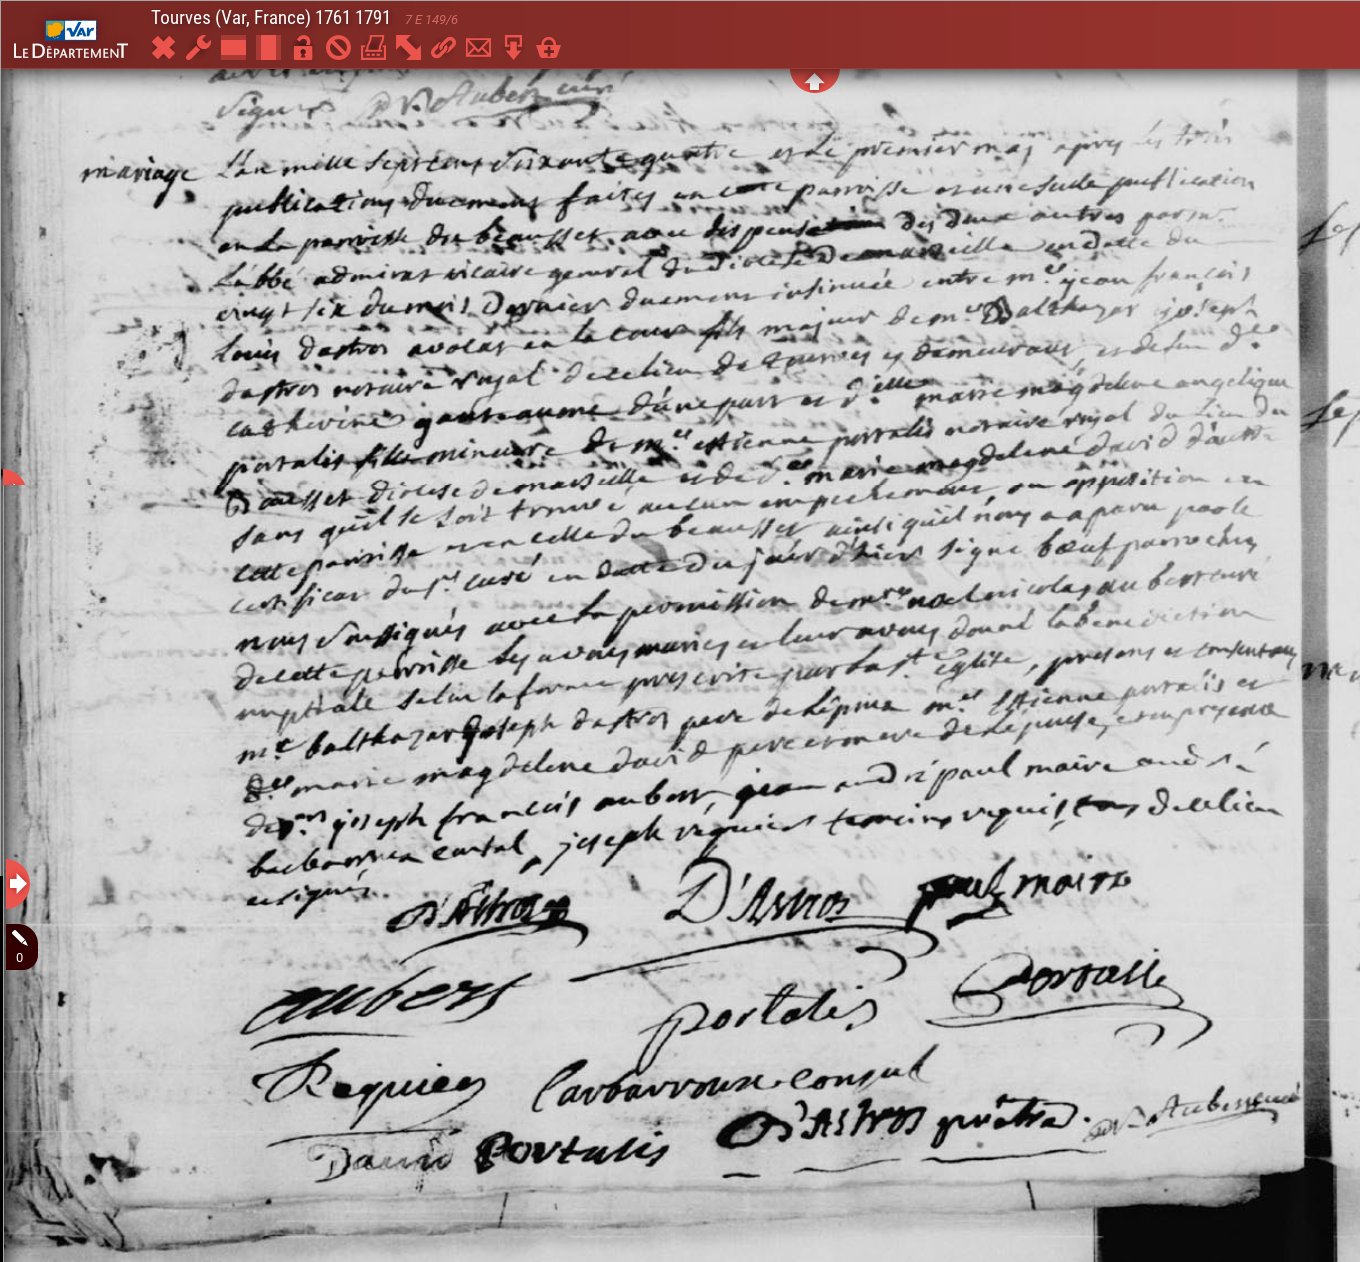 Tourves (Var, France) 1761 1791 7 E 149/6
VAR
LE DÉPARTEMENT
signés aubert curé
mariage L'an mille sept cens soixante quatre et le premier may apres les trois
publications duement faites en cette parroisse et une seule publication
en la parroisse du beausset avec dispense des deux autres par mr.
Labbé admirat vicaire general du diocese de marseille en datte du
vingt six du mois dernier duement insinuée entre me. jean françois
louis dastros avocat en la cour fils majeur de me. Balthazar joseph
dastros notaire royal de ce lieu de tourves y demeurant, et de feu dlle
catherine d'une part et dlle. marie magdelene angelique
portalis fille mineure de me. estienne portalis notaire royal du lieu du
Bausset diocese de marseille et de dlle. marie magdelene david d'autre
sans qu'il se soit trouvé aucun empechement, ou opposition en
cette parroisse et en celle du beausset ainsi qu'il nous a aparu par le
certificat du sr. curé en datte du jour d'hier signé bœuf
nous soussignés avec la permission de mre. noel nicolas aubert curé
de cette parroisse les avons mariés et leur avons donné la benediction
nuptiale selon la forme prescrite par la ste. eglise, presens et consentans
me. balthazar joseph dastros pere de l'epoux me. Estienne portalis et
dlle marie magdelene david pere et mere de l'epouse, et en presence
de srs. joseph françois aubert, jean andré paul maire
barbarroux consul, joseph requier temoins requis tous de ce lieu
et signés.
D'Astros D'Astros paul maire
aubert portalis Portalis
Requier barbarroux consul
David Portalis D'Astros prêtre. Aubert curé
0